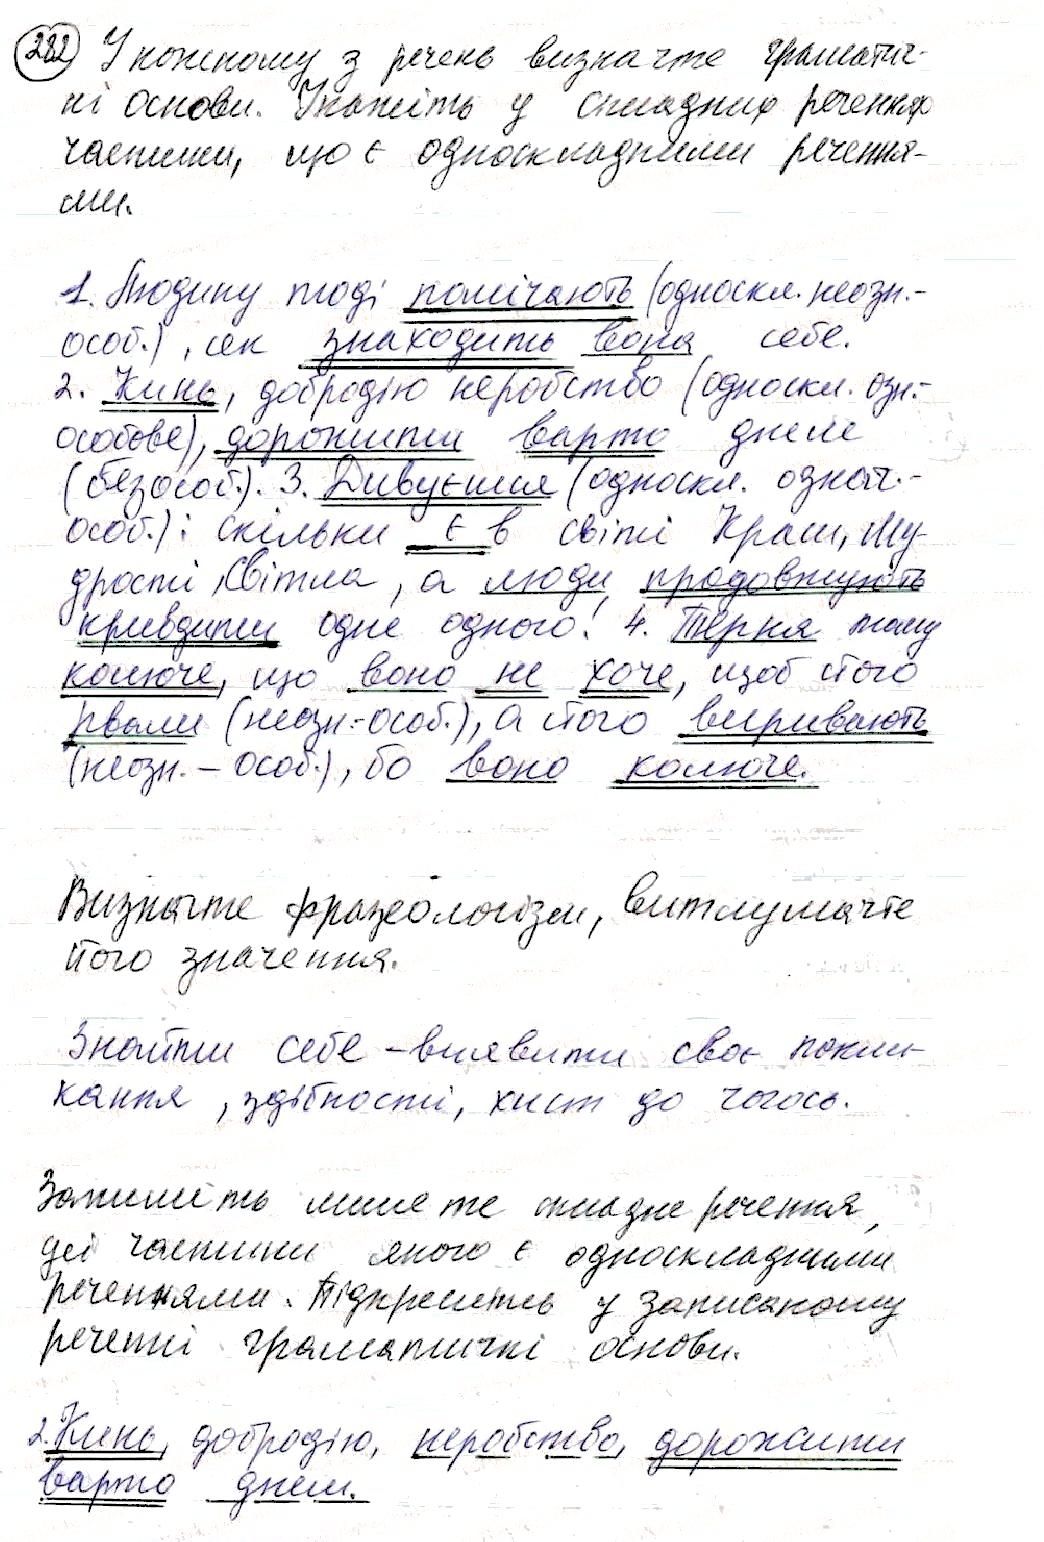 282 У кожному з речень визначте граматич-
ні основи. Укажіть у складних реченнях
частини, що є односкладними речення-
ми.
1. Людину тоді помічають (односкл. неозн.-
особ.), як знаходить вона себе.
2. Кинь, добродію неробство (односкл. озн.-
особове), дорожити варто днем
(безособ.). 3. Дивуєшся (односкл. означ.-
особ.): скільки є в світі Краси, Му-
дрості, Світла, а люди продовжують
кривдити одне одного! 4. Терня тому
колюче, що воно не хоче, щоб його
рвали (неозн.-особ.), а його виривають
(неозн. – особ.), бо воно колюче.
Визначте фразеологізм, витлумачте
його значення.
Знайти себе – виявити своє покли-
кання, здібності, хист до чогось.
Запишіть лише те складне речення,
дві частини якого є односкладними
реченнями. Підкресліть у записаному
реченні граматичні основи.
2. Кинь, добродію, неробство, дорожити
варто днем.